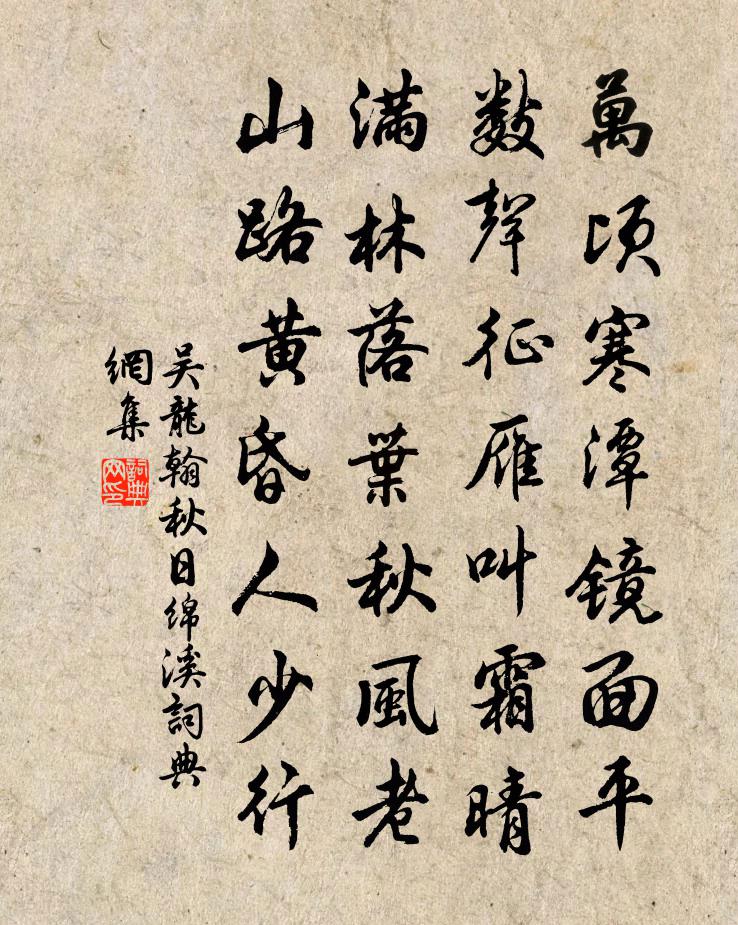 萬頃寒潭镜面平
數聲征雁叫霜晴
滿林落葉秋風老
山路黄昏人少行
吴龍翰秋日绵溪詞典
網集
詞典
网印